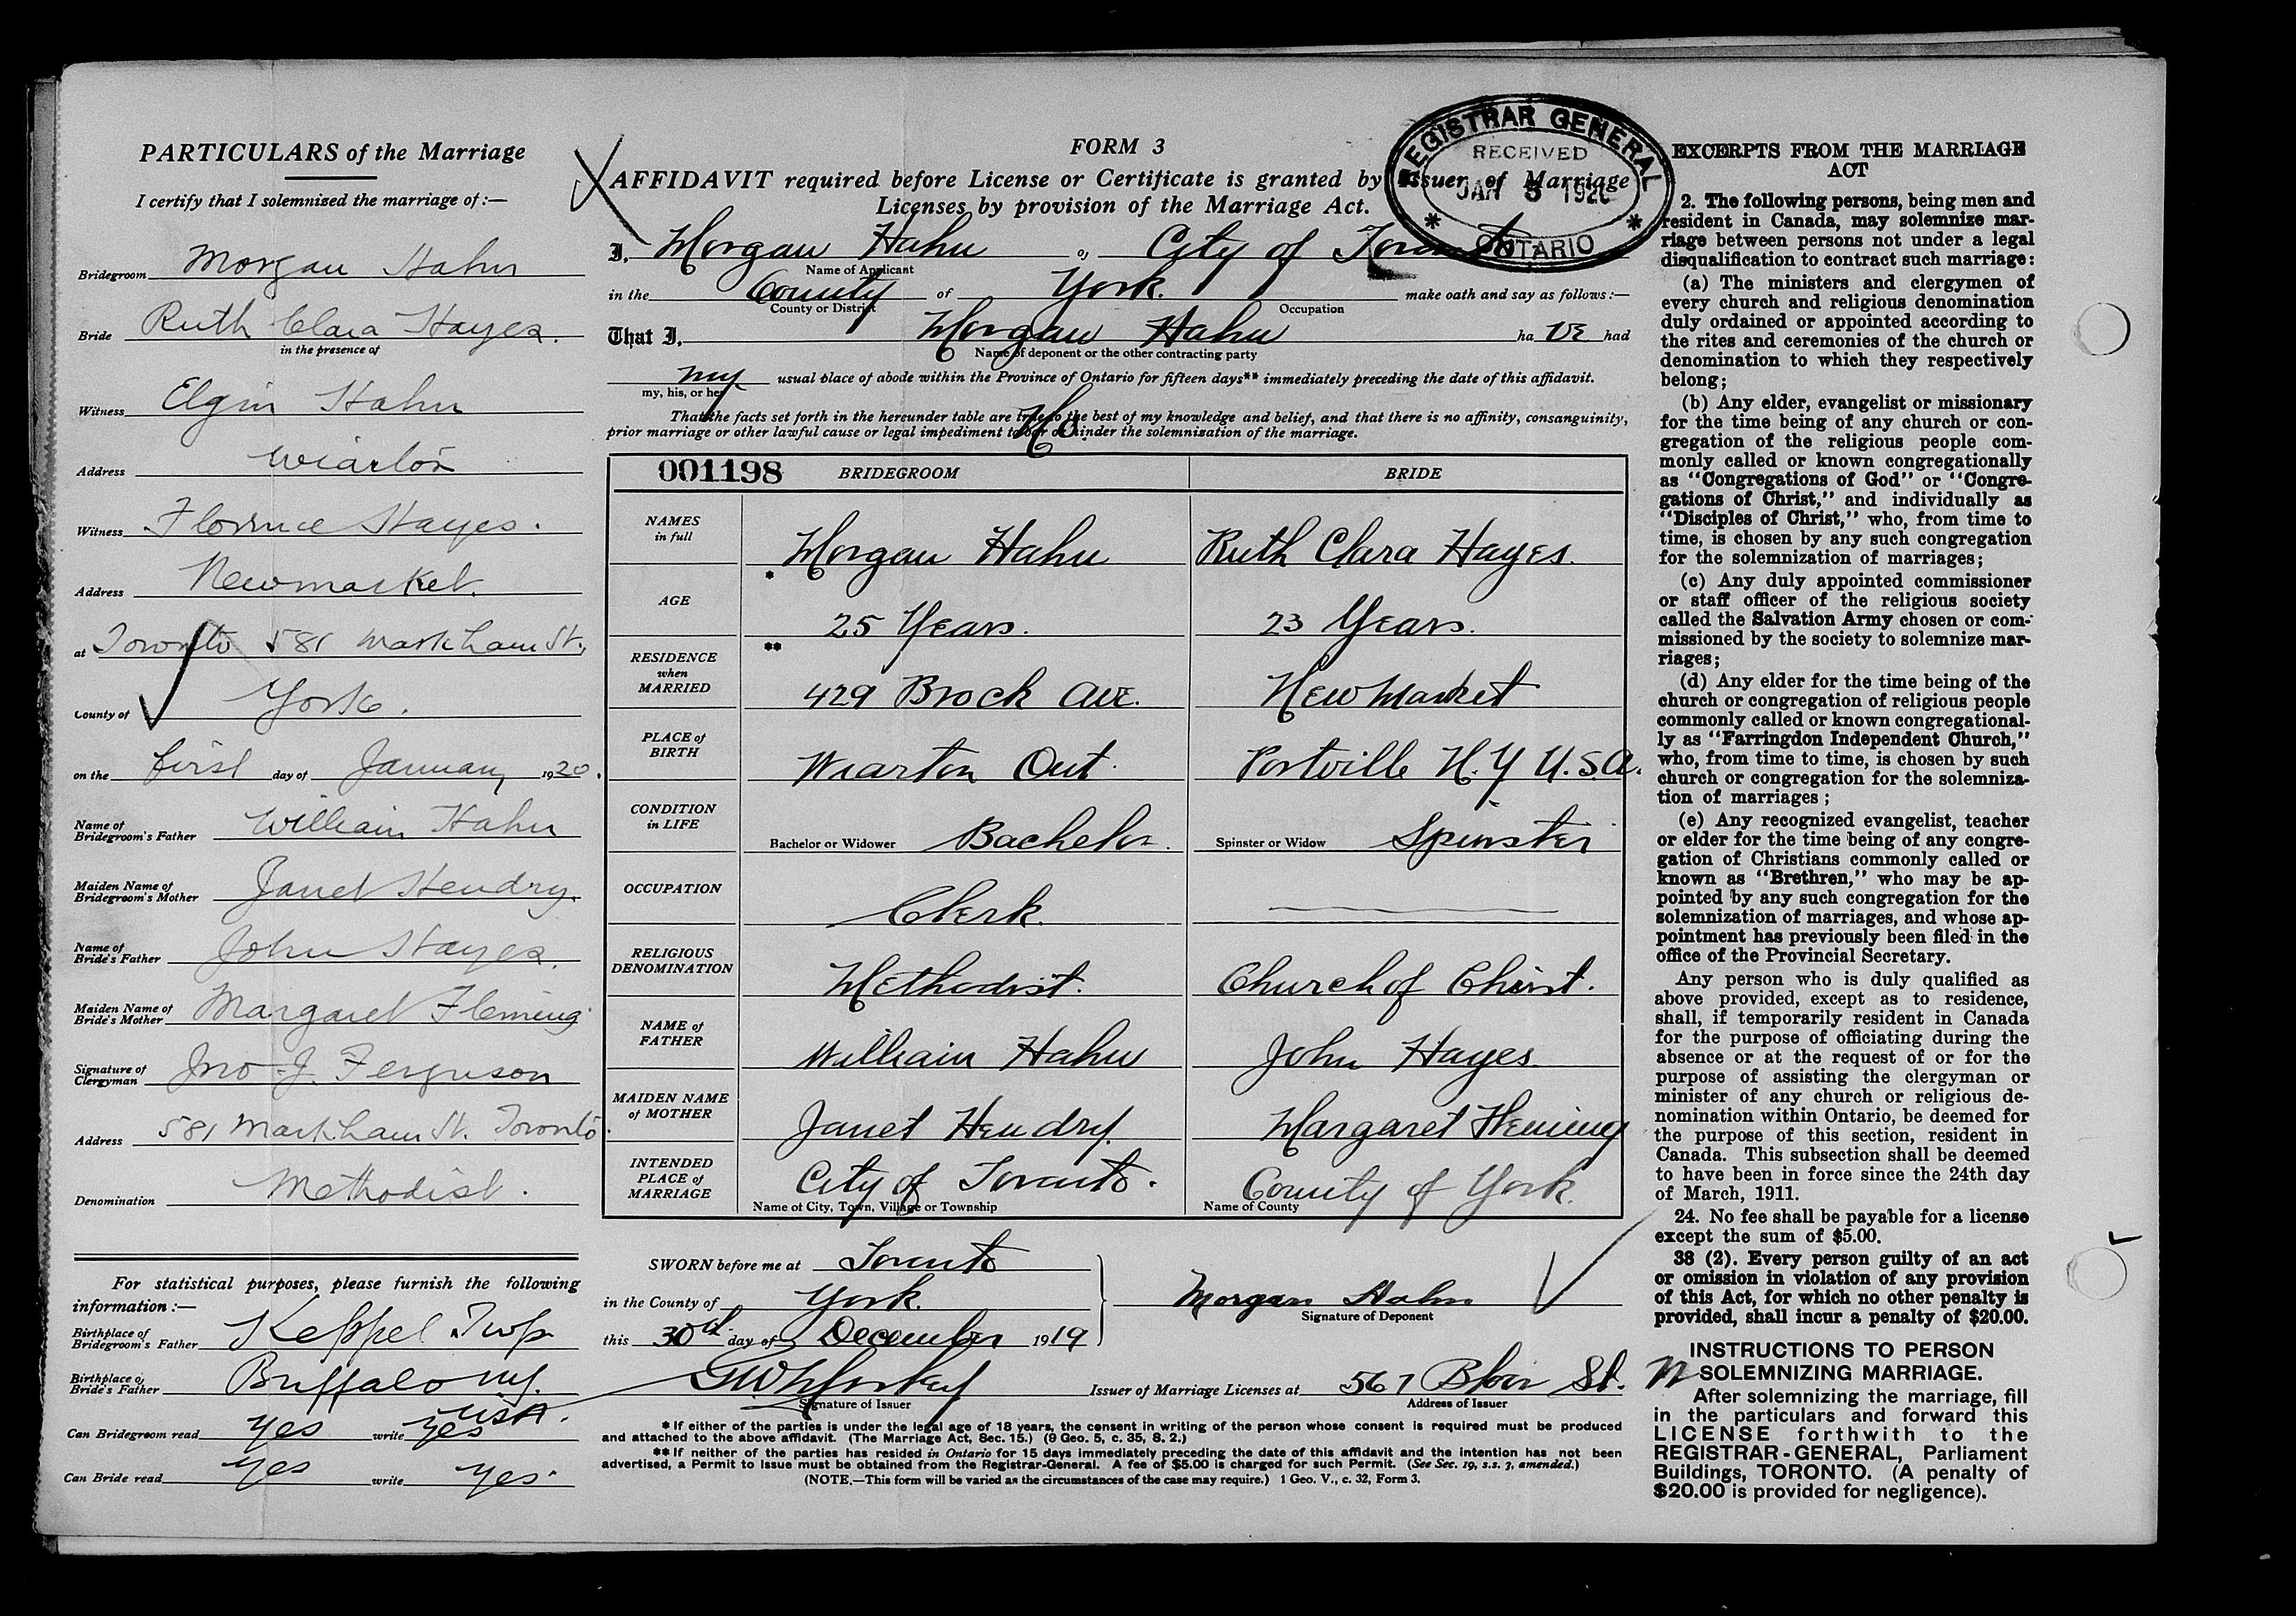 PARTICULARS of the Marriage
I certify that I solemnized the marriage of :—
Bridegroom Morgan Hahn
Bride Ruth Clara Hayes.
in the presence of
Witness Elgin Hahn
Address Wiarton
Witness Florence Hayes.
Address Newmarket.
at Toronto 581 Markham St.,
County of York.
on the first day of January 1920.
Name of Bridegroom's Father William Hahn
Maiden Name of Bridegroom's Mother Janet Hendry.
Name of Bride's Father John Hayes.
Maiden Name of Bride's Mother Margaret Fleming
Signature of Clergyman Jno. J. Ferguson
Address 581 Markham St. Toronto.
Denomination Methodist.
For statistical purposes, please furnish the following
information :—
Birthplace of Bridegroom's Father Keppel Twp.
Birthplace of Bride's Father Buffalo NY. USA.
Can Bridegroom read yes write yes
Can Bride read yes write yes.
FORM 3
AFFIDAVIT required before License or Certificate is granted by Issuer of Marriage
Licenses by provision of the Marriage Act.
REGISTRAR GENERAL
RECEIVED
JAN 5 1920
ONTARIO
I, Morgan Hahn of City of Toronto
Name of Applicant
in the County of York. make oath and say as follows :—
County or District Occupation
That I, Morgan Hahn ha ve had
Name of deponent or the other contracting party
my usual place of abode within the Province of Ontario for fifteen days** immediately preceding the date of this affidavit.
my, his, or her
That the facts set forth in the hereunder table are true to the best of my knowledge and belief, and that there is no affinity, consanguinity,
prior marriage or other lawful cause or legal impediment to bar or hinder the solemnization of the marriage.
001198 BRIDEGROOM BRIDE
NAMES in full Morgan Hahn Ruth Clara Hayes.
* AGE 25 Years. 23 Years.
** RESIDENCE when MARRIED 429 Brock Ave. Newmarket
PLACE of BIRTH Wiarton Ont. Portville N.Y U.S.A.
CONDITION in LIFE Bachelor or Widower Bachelor. Spinster or Widow Spinster
OCCUPATION Clerk.
RELIGIOUS DENOMINATION Methodist. Church of Christ.
NAME of FATHER William Hahn John Hayes.
MAIDEN NAME of MOTHER Janet Hendry. Margaret Fleming
INTENDED PLACE of MARRIAGE City of Toronto. County of York.
Name of City, Town, Village or Township Name of County
SWORN before me at Toronto
in the County of York. Morgan Hahn
Signature of Deponent
this 30th day of December 1919
Issuer of Marriage Licenses at 567 Bloor St. W
Signature of Issuer Address of Issuer
* If either of the parties is under the legal age of 18 years, the consent in writing of the person whose consent is required must be produced
and attached to the above affidavit. (The Marriage Act, Sec. 15.) (9 Geo. 5, c. 35, S. 2.)
** If neither of the parties has resided in Ontario for 15 days immediately preceding the date of this affidavit and the intention has not been
advertised, a Permit to Issue must be obtained from the Registrar-General. A fee of $5.00 is charged for such Permit. (See Sec. 19, s.s. 3, amended.)
(NOTE.—This form will be varied as the circumstances of the case may require.) 1 Geo. V., c. 32, Form 3.
EXCERPTS FROM THE MARRIAGE
ACT
2. The following persons, being men and
resident in Canada, may solemnize mar-
riage between persons not under a legal
disqualification to contract such marriage :
(a) The ministers and clergymen of
every church and religious denomination
duly ordained or appointed according to
the rites and ceremonies of the church or
denomination to which they respectively
belong;
(b) Any elder, evangelist or missionary
for the time being of any church or con-
gregation of the religious people com-
monly called or known congregationally
as "Congregations of God" or "Congre-
gations of Christ," and individually as
"Disciples of Christ," who, from time to
time, is chosen by any such congregation
for the solemnization of marriages;
(c) Any duly appointed commissioner
or staff officer of the religious society
called the Salvation Army chosen or com-
missioned by the society to solemnize mar-
riages;
(d) Any elder for the time being of the
church or congregation of religious people
commonly called or known congregational-
ly as "Farringdon Independent Church,"
who, from time to time, is chosen by such
church or congregation for the solemniza-
tion of marriages ;
(e) Any recognized evangelist, teacher
or elder for the time being of any congre-
gation of Christians commonly called or
known as "Brethren," who may be ap-
pointed by any such congregation for the
solemnization of marriages, and whose ap-
pointment has previously been filed in the
office of the Provincial Secretary.
Any person who is duly qualified as
above provided, except as to residence,
shall, if temporarily resident in Canada
for the purpose of officiating during the
absence or at the request of or for the
purpose of assisting the clergyman or
minister of any church or religious de-
nomination within Ontario, be deemed for
the purpose of this section, resident in
Canada. This subsection shall be deemed
to have been in force since the 24th day
of March, 1911.
24. No fee shall be payable for a license
except the sum of $5.00.
38 (2). Every person guilty of an act
or omission in violation of any provision
of this Act, for which no other penalty is
provided, shall incur a penalty of $20.00.
INSTRUCTIONS TO PERSON
SOLEMNIZING MARRIAGE.
After solemnizing the marriage, fill
in the particulars and forward this
LICENSE forthwith to the
REGISTRAR-GENERAL, Parliament
Buildings, TORONTO. (A penalty of
$20.00 is provided for negligence).